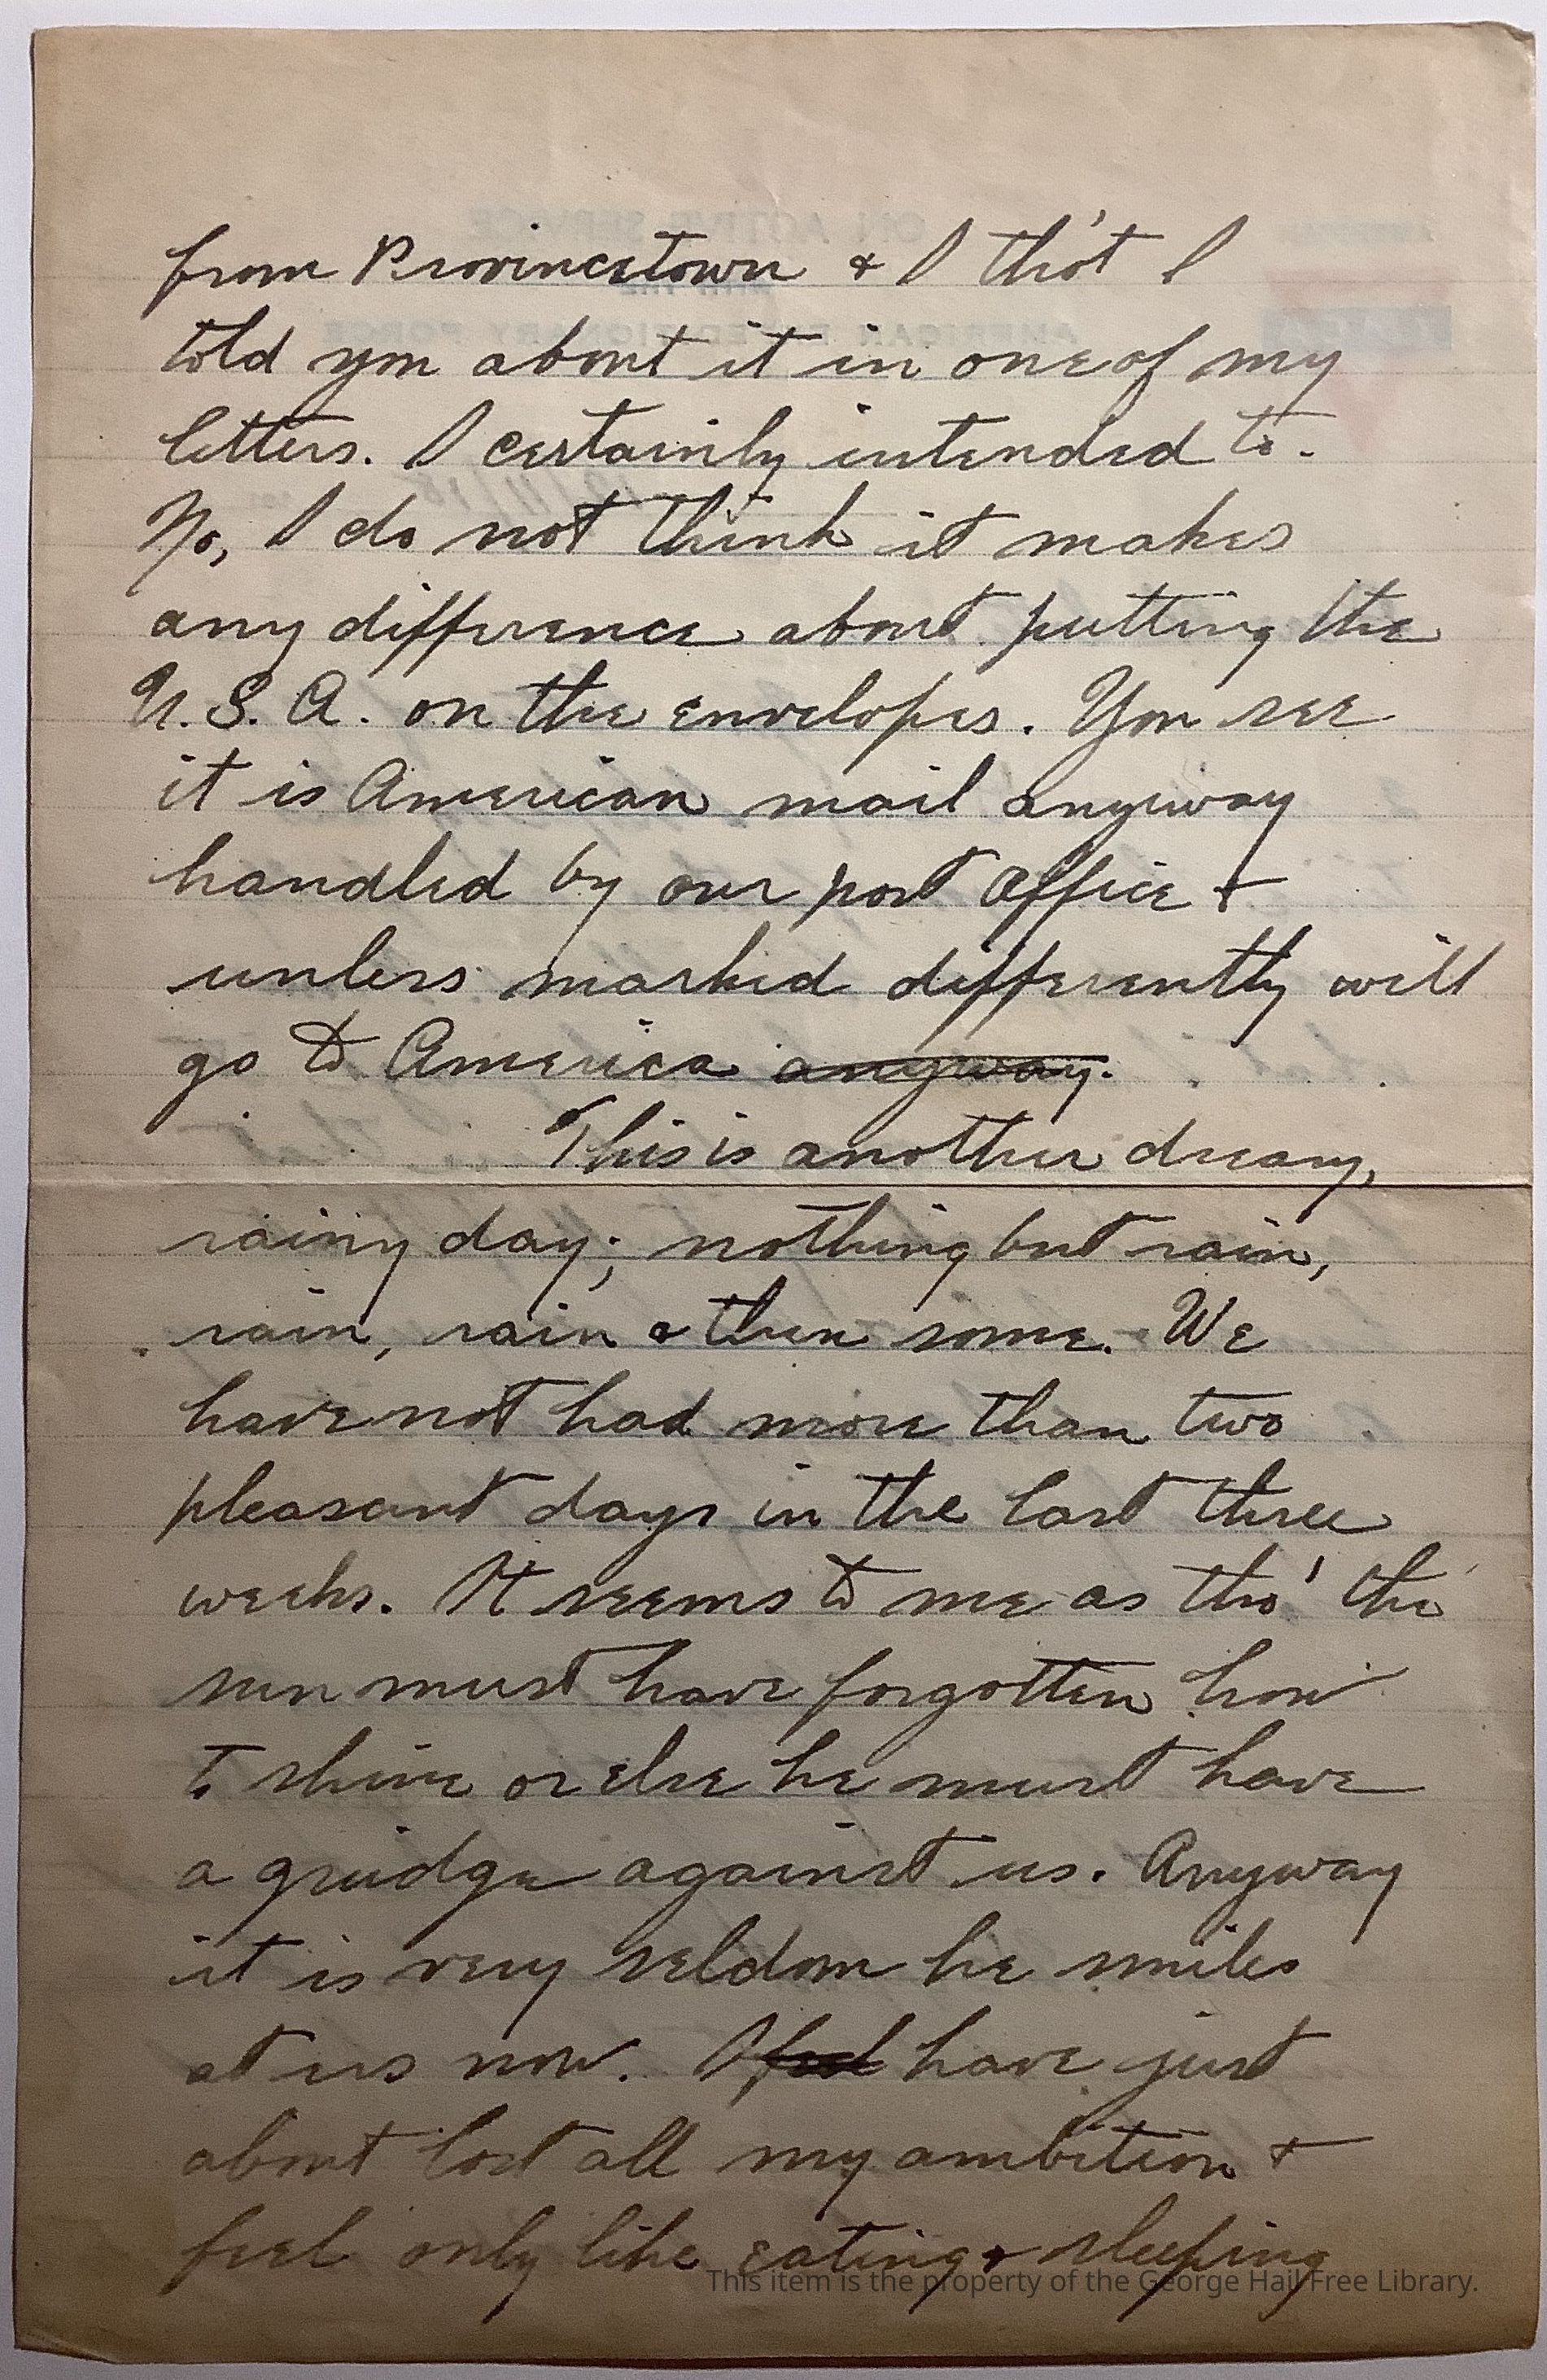 from Provincetown & I tho't I
told you about it in one of my
letters. I certainly intended to.
No, I do not think it makes
any difference about putting the
U.S.A. on the envelopes. You see
it is American mail anyway
handled by our post office &
unless marked differently will
go to America anyway.
This is another dreary,
rainy day; nothing but rain,
rain, rain & then some. We
have not had more than two
pleasant days in the last three
weeks. It seems to me as tho' the
sun must have forgotten how
to shine or else he must have
a grudge against us. Anyway
it is very seldom he smiles
at us now. I feel have just
about lost all my ambition &
feel only like eating & sleeping
This item is the property of the George Hail Free Library.